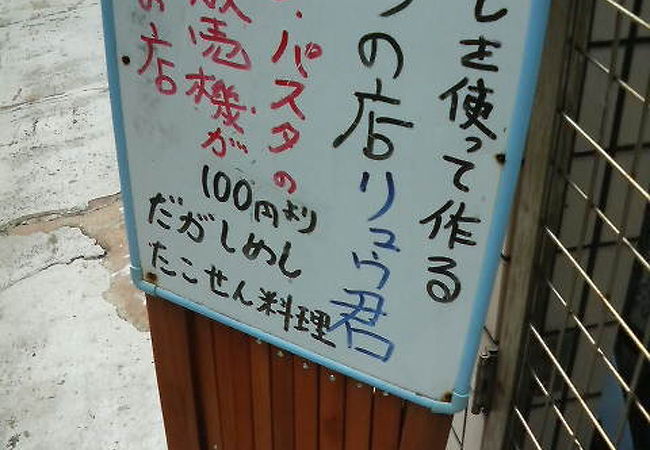 しを使って作る
りの店リュウ君
・パスタの
販売機が
お店
100円より
だがしめし
たこせん料理